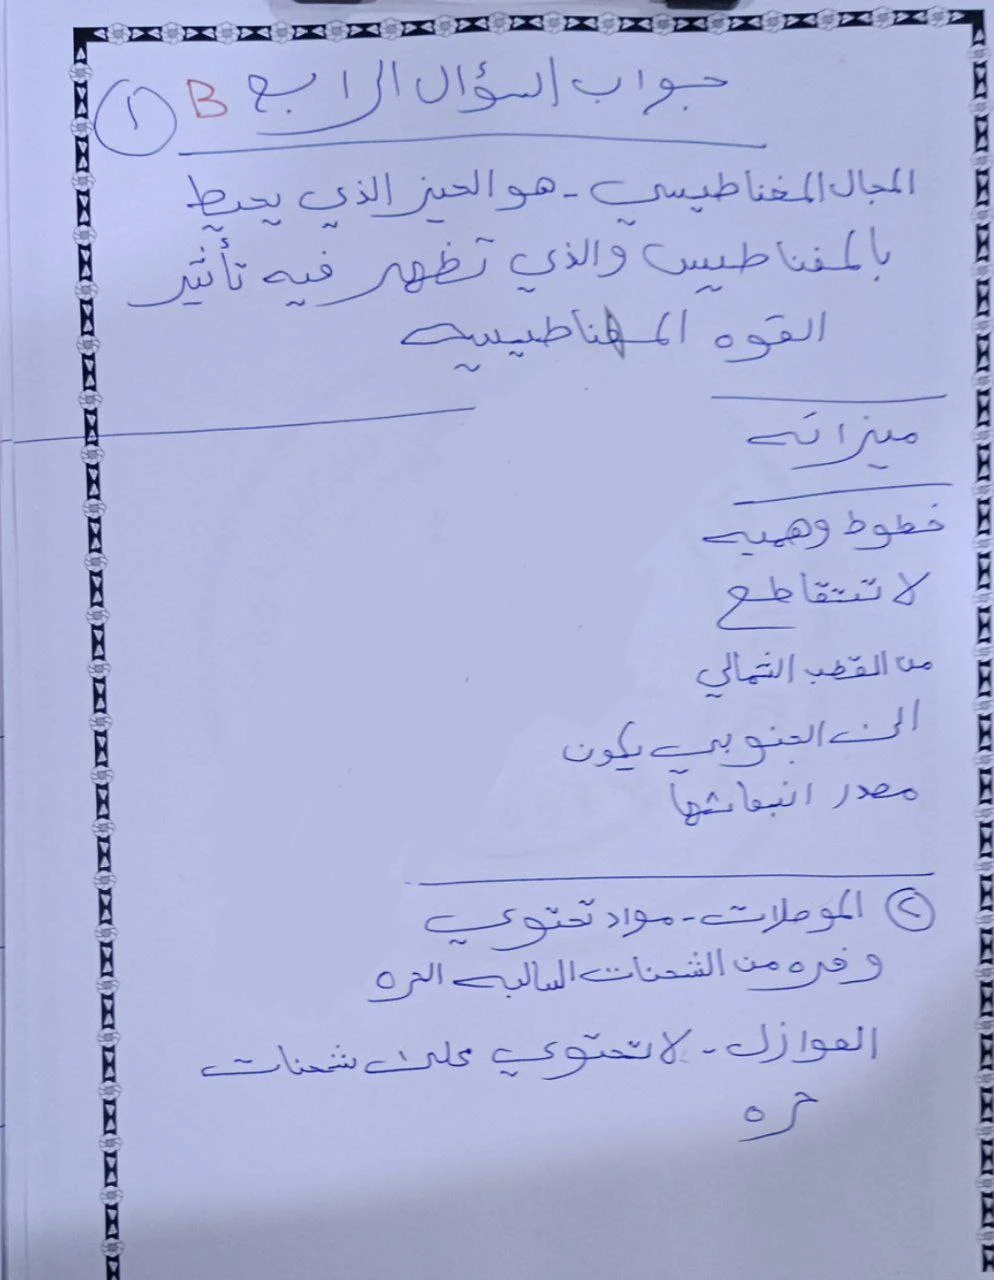 جواب السؤال الرابع B ①
المجال المغناطيسي - هو الحيز الذي يحيط
بالمغناطيس والذي تظهر فيه تأثير
القوه المغناطيسيه
ميزاته
خطوط وهميه
لا تتقاطع
من القطب الشمالي
الى الجنوبي يكون
مصدر انبعاثها
② الموصلات - مواد تحتوي
وفره من الشحنات السالبه الحره
العوازل - لا تحتوي على شحنات
حره